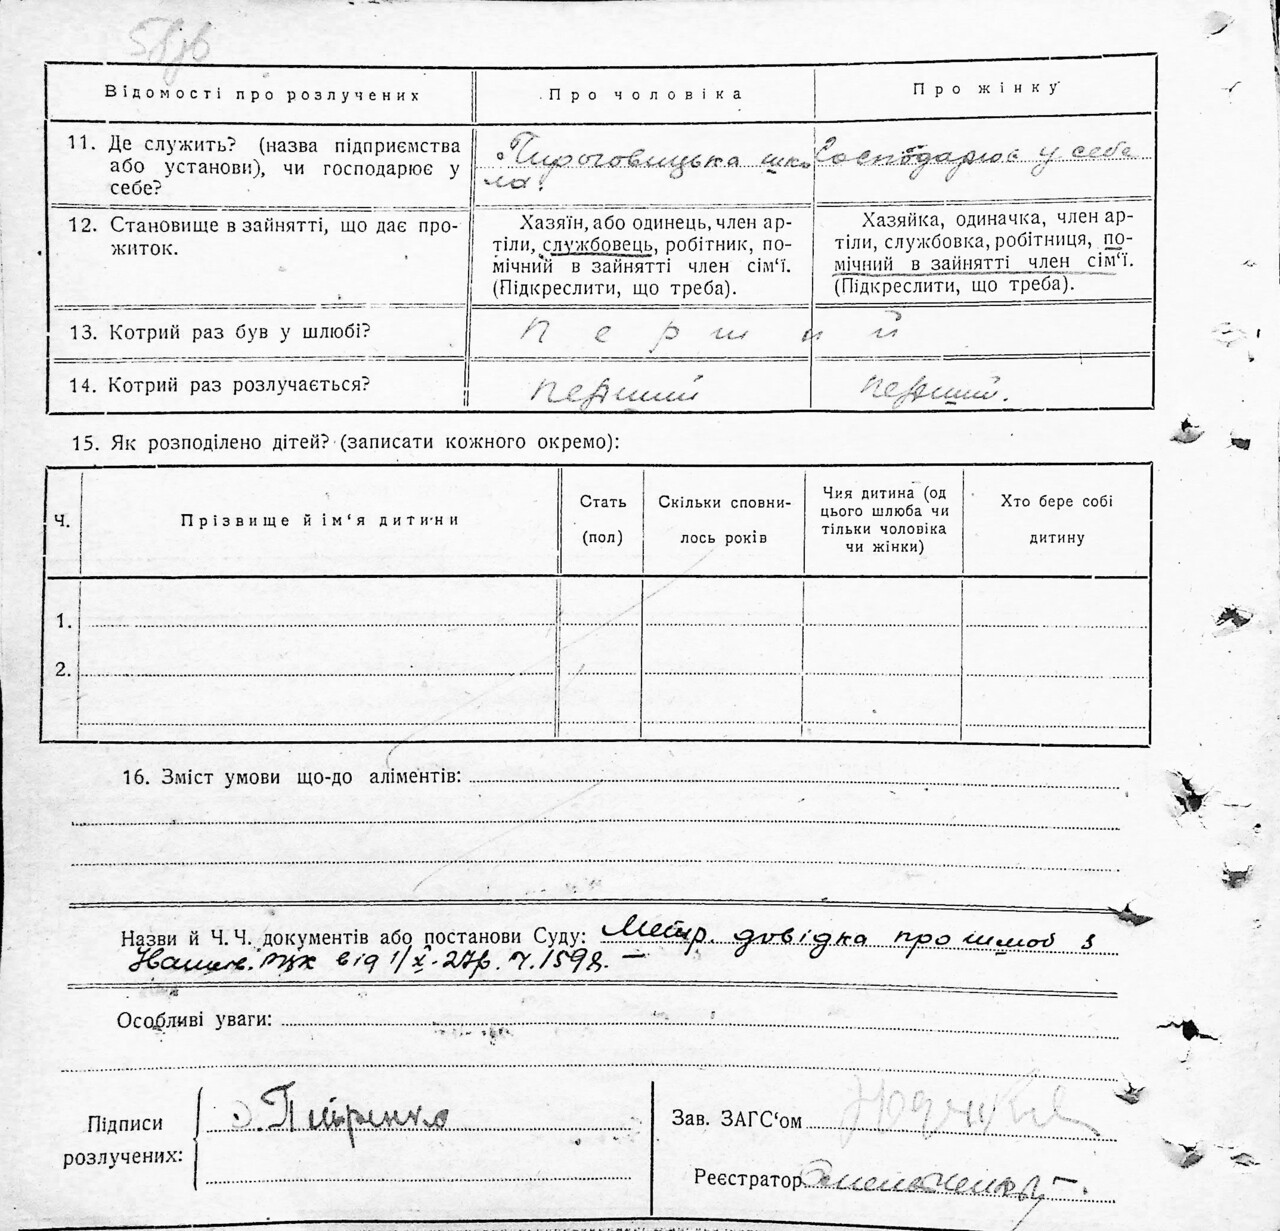 Відомості про розлучених
Про чоловіка
Про жінку
11. Де служить? (назва підприємства
або установи), чи господарює у
себе?
Пироговицька шко
ла.
Господарює у себе
12. Становище в зайнятті, що дає про-
житок.
Хазяїн, або одинець, член ар-
тіли, службовець, робітник, по-
мічний в зайнятті член сім‘ї.
(Підкреслити, що треба).
Хазяйка, одиначка, член ар-
тіли, службовка, робітниця, по-
мічний в зайнятті член сім‘ї.
(Підкреслити, що треба).
13. Котрий раз був у шлюбі?
Перший
14. Котрий раз розлучається?
перший
перший.
15. Як розподілено дітей? (записати кожного окремо):
Ч.
Прізвище й ім‘я дитини
Стать
(пол)
Скільки сповни-
лось років
Чия дитина (од
цього шлюба чи
тільки чоловіка
чи жінки)
Хто бере собі
дитину
1.
2.
16. Зміст умови що-до аліментів:
Назви й Ч.Ч. документів або постанови Суду: Метр. довідка про шлюб з
від 1/X-27р. ч. 1598. —
Особливі уваги:
Підписи
розлучених:
Зав. ЗАГС‘ом
Реєстратор